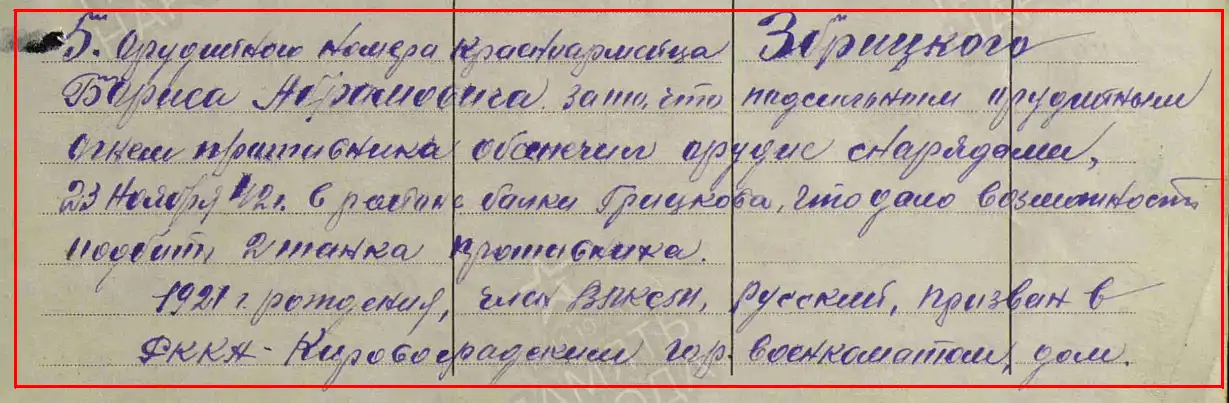 5. Орудийного номера красноармейца Збрицкого
Бориса Абрамовича за то, что под сильным орудийным
огнем противника обеспечил орудие снарядами,
23 ноября 42 г. в районе балки Грицкова, что дало возможность
подбить 2 танка противника.
1921 г. рождения, член ВЛКСМ, русский, призван в
РККА - Кировоградским гор. военкоматом,